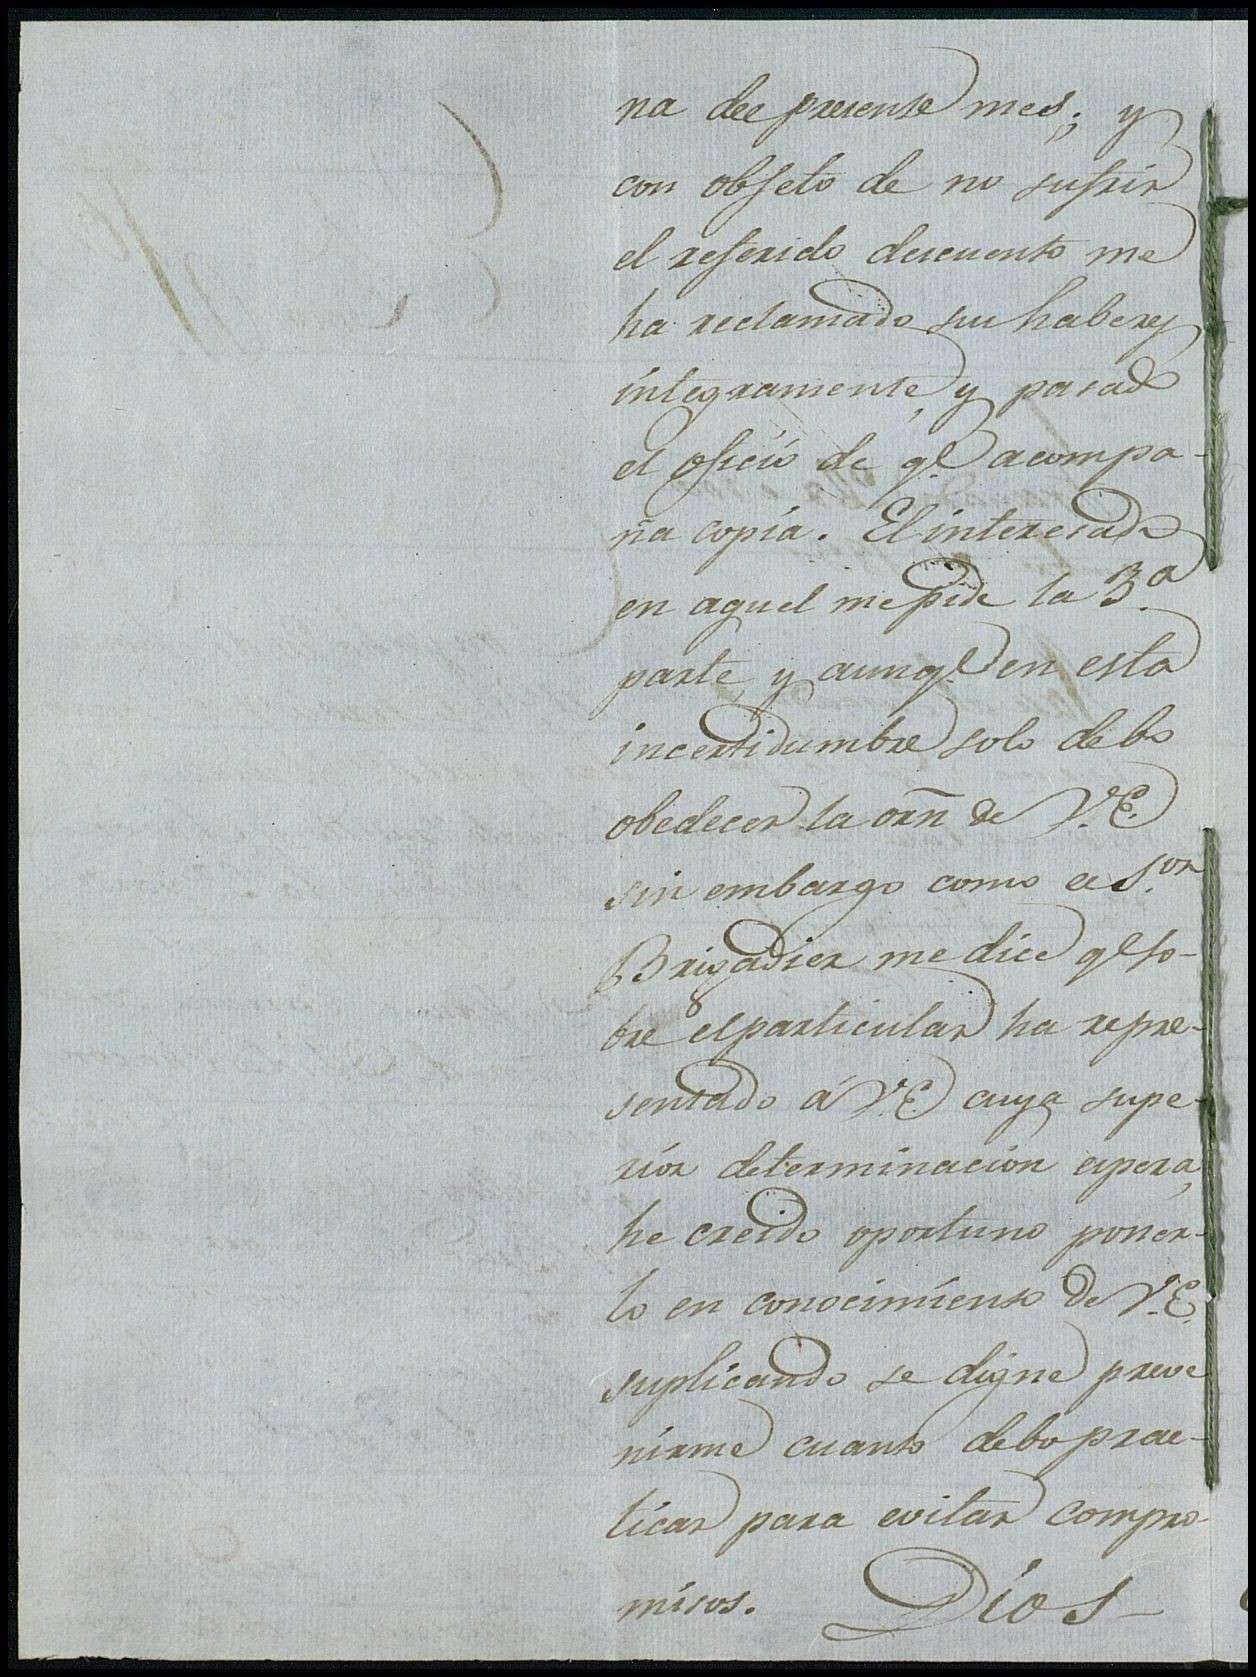 na del presente mes; y
con objeto de no sufrir
el referido descuento me
ha reclamado su haber y
integramente, y pasado
el oficio de q.e acompa-
ña copia. El interesado
en aquel me pide la 3.a
parte y aunq.e en esta
incertidumbre solo debo
obedecer la orn de V.E.
sin embargo como el S.or
Brigadier me dice q.e so-
bre el particular ha repre-
sentado á V.E. cuya supe-
rior determinacion espera,
he creido oportuno poner-
lo en conocimiento de V.E.
suplicando se digne preve
nirme cuanto debo prac-
ticar para evitar compro-
misos. Dios